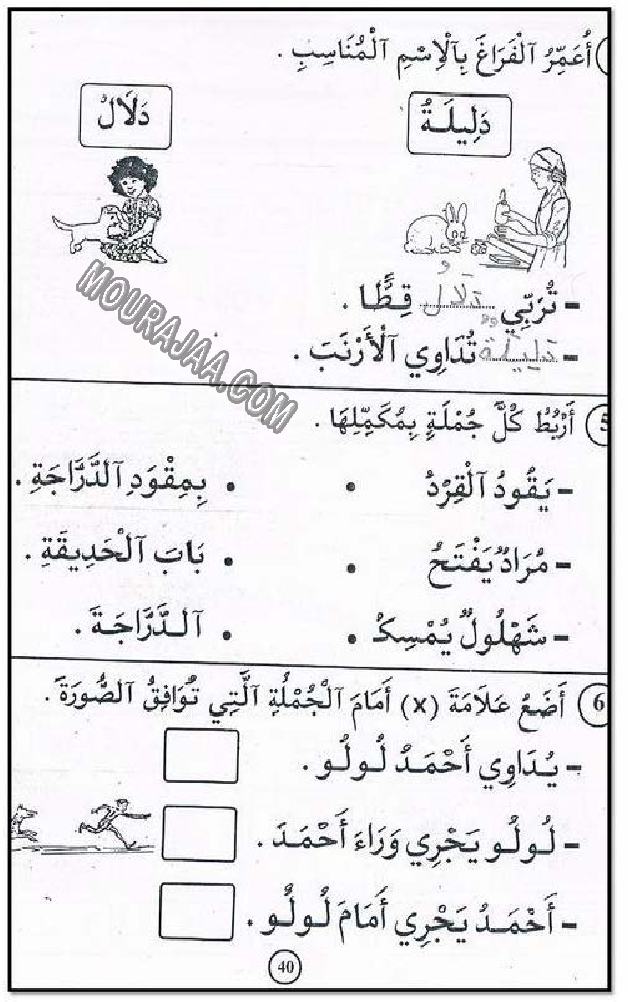 أُعَمِّرُ ٱلْفَرَاغَ بِٱلْاِسْمِ ٱلْمُنَاسِبِ .
دَلِيلَةُ
دَلَالُ
- تُرَبِّي دَلَالُ قِطًّا .
- دَلِيلَةُ تُدَاوِي ٱلْأَرْنَبَ .
MOURAJAA.COM
5 أَرْبُطُ كُلَّ جُمْلَةٍ بِمُكَمِّلِهَا .
- يَقُودُ ٱلْقِرْدُ • • بِمِقْوَدِ ٱلدَّرَّاجَةِ .
- مُرَادٌ يَفْتَحُ • • بَابَ ٱلْحَدِيقَةِ .
- شَهْلُولٌ يُمْسِكُ • • ٱلدَّرَّاجَةَ .
6 أَضَعُ عَلَامَةَ (x) أَمَامَ ٱلْجُمْلَةِ ٱلَّتِي تُوَافِقُ ٱلصُّورَةَ .
- يُدَاوِي أَحْمَدُ لُولُو .
- لُولُو يَجْرِي وَرَاءَ أَحْمَدَ .
- أَحْمَدُ يَجْرِي أَمَامَ لُولُو .
40